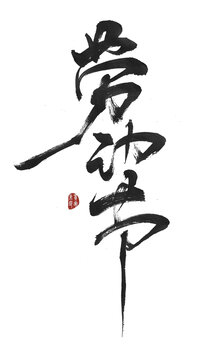 劳动节